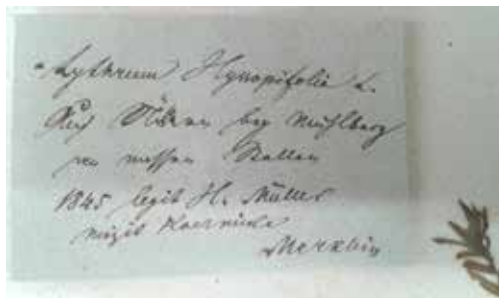 Lythrum Hyssopifolia L.
Auf Äckern bey Mühlberg
an nassen Stellen
1845 legit H. Müller
misit